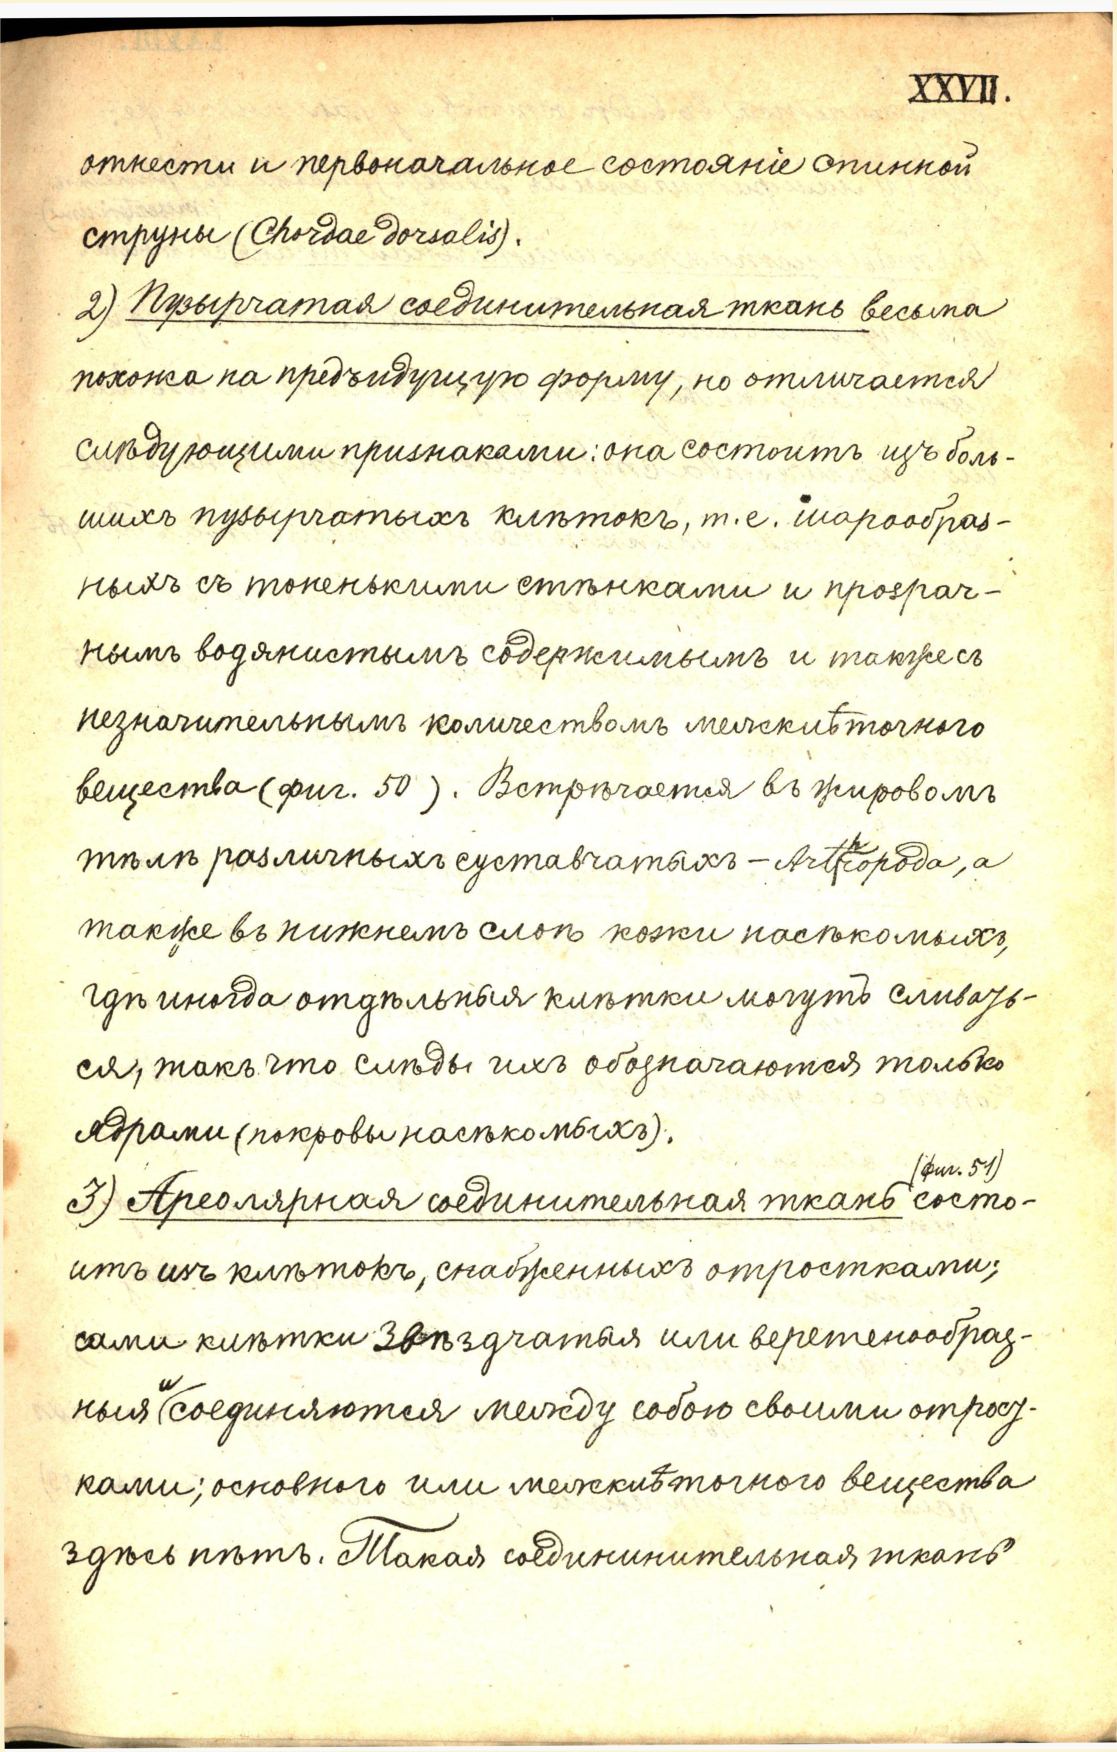 XXVII.
отнести и первоначальное состояніе спинной
струны (Chordae dorsalis).
2) Пузырчатая соединительная ткань весьма
похожа на предъидущую форму, но отличается
слѣдующими признаками: она состоитъ изъ боль-
шихъ пузырчатыхъ клѣтокъ, т.е. шарообраз-
ныхъ съ тоненькими стѣнками и прозрач-
нымъ водянистымъ содержимымъ и также съ
незначительнымъ количествомъ межклѣточного
вещества (фиг. 50). Встрѣчается въ жировомъ
тѣлѣ различныхъ суставчатыхъ — Arthropoda, а
также въ нижнемъ слоѣ кожи насѣкомыхъ,
гдѣ иногда отдѣльныя клѣтки могутъ сливать-
ся, такъ что слѣды ихъ обозначаются только
ядрами (покровы насѣкомыхъ).
(фиг. 51)
3) Ареолярная соединительная ткань состо-
итъ изъ клѣтокъ, снабженныхъ отростками;
сами клѣтки звѣздчатыя или веретенообраз-
ныя и соединяются между собою своими отрост-
ками; основного или межклѣточного вещества
здѣсь нѣтъ. Такая соединительная ткань